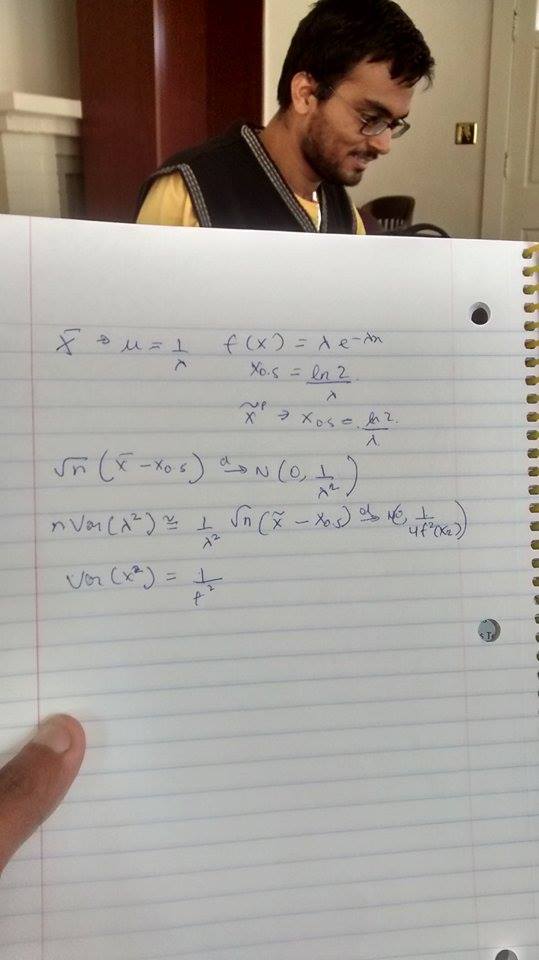 x̄ → μ = 1/λ f(x) = λ e^-λx
x0.5 = ln 2/λ
x̃ p→ x0.5 = ln 2/λ
√n (x̄ - x0.5) d→ N(0, 1/λ²)
n Var(λ²) ≅ 1/λ² √n (x̃ - x0.5) d→ N(0, 1/4f²(x2))
Var(x²) = 1/f²